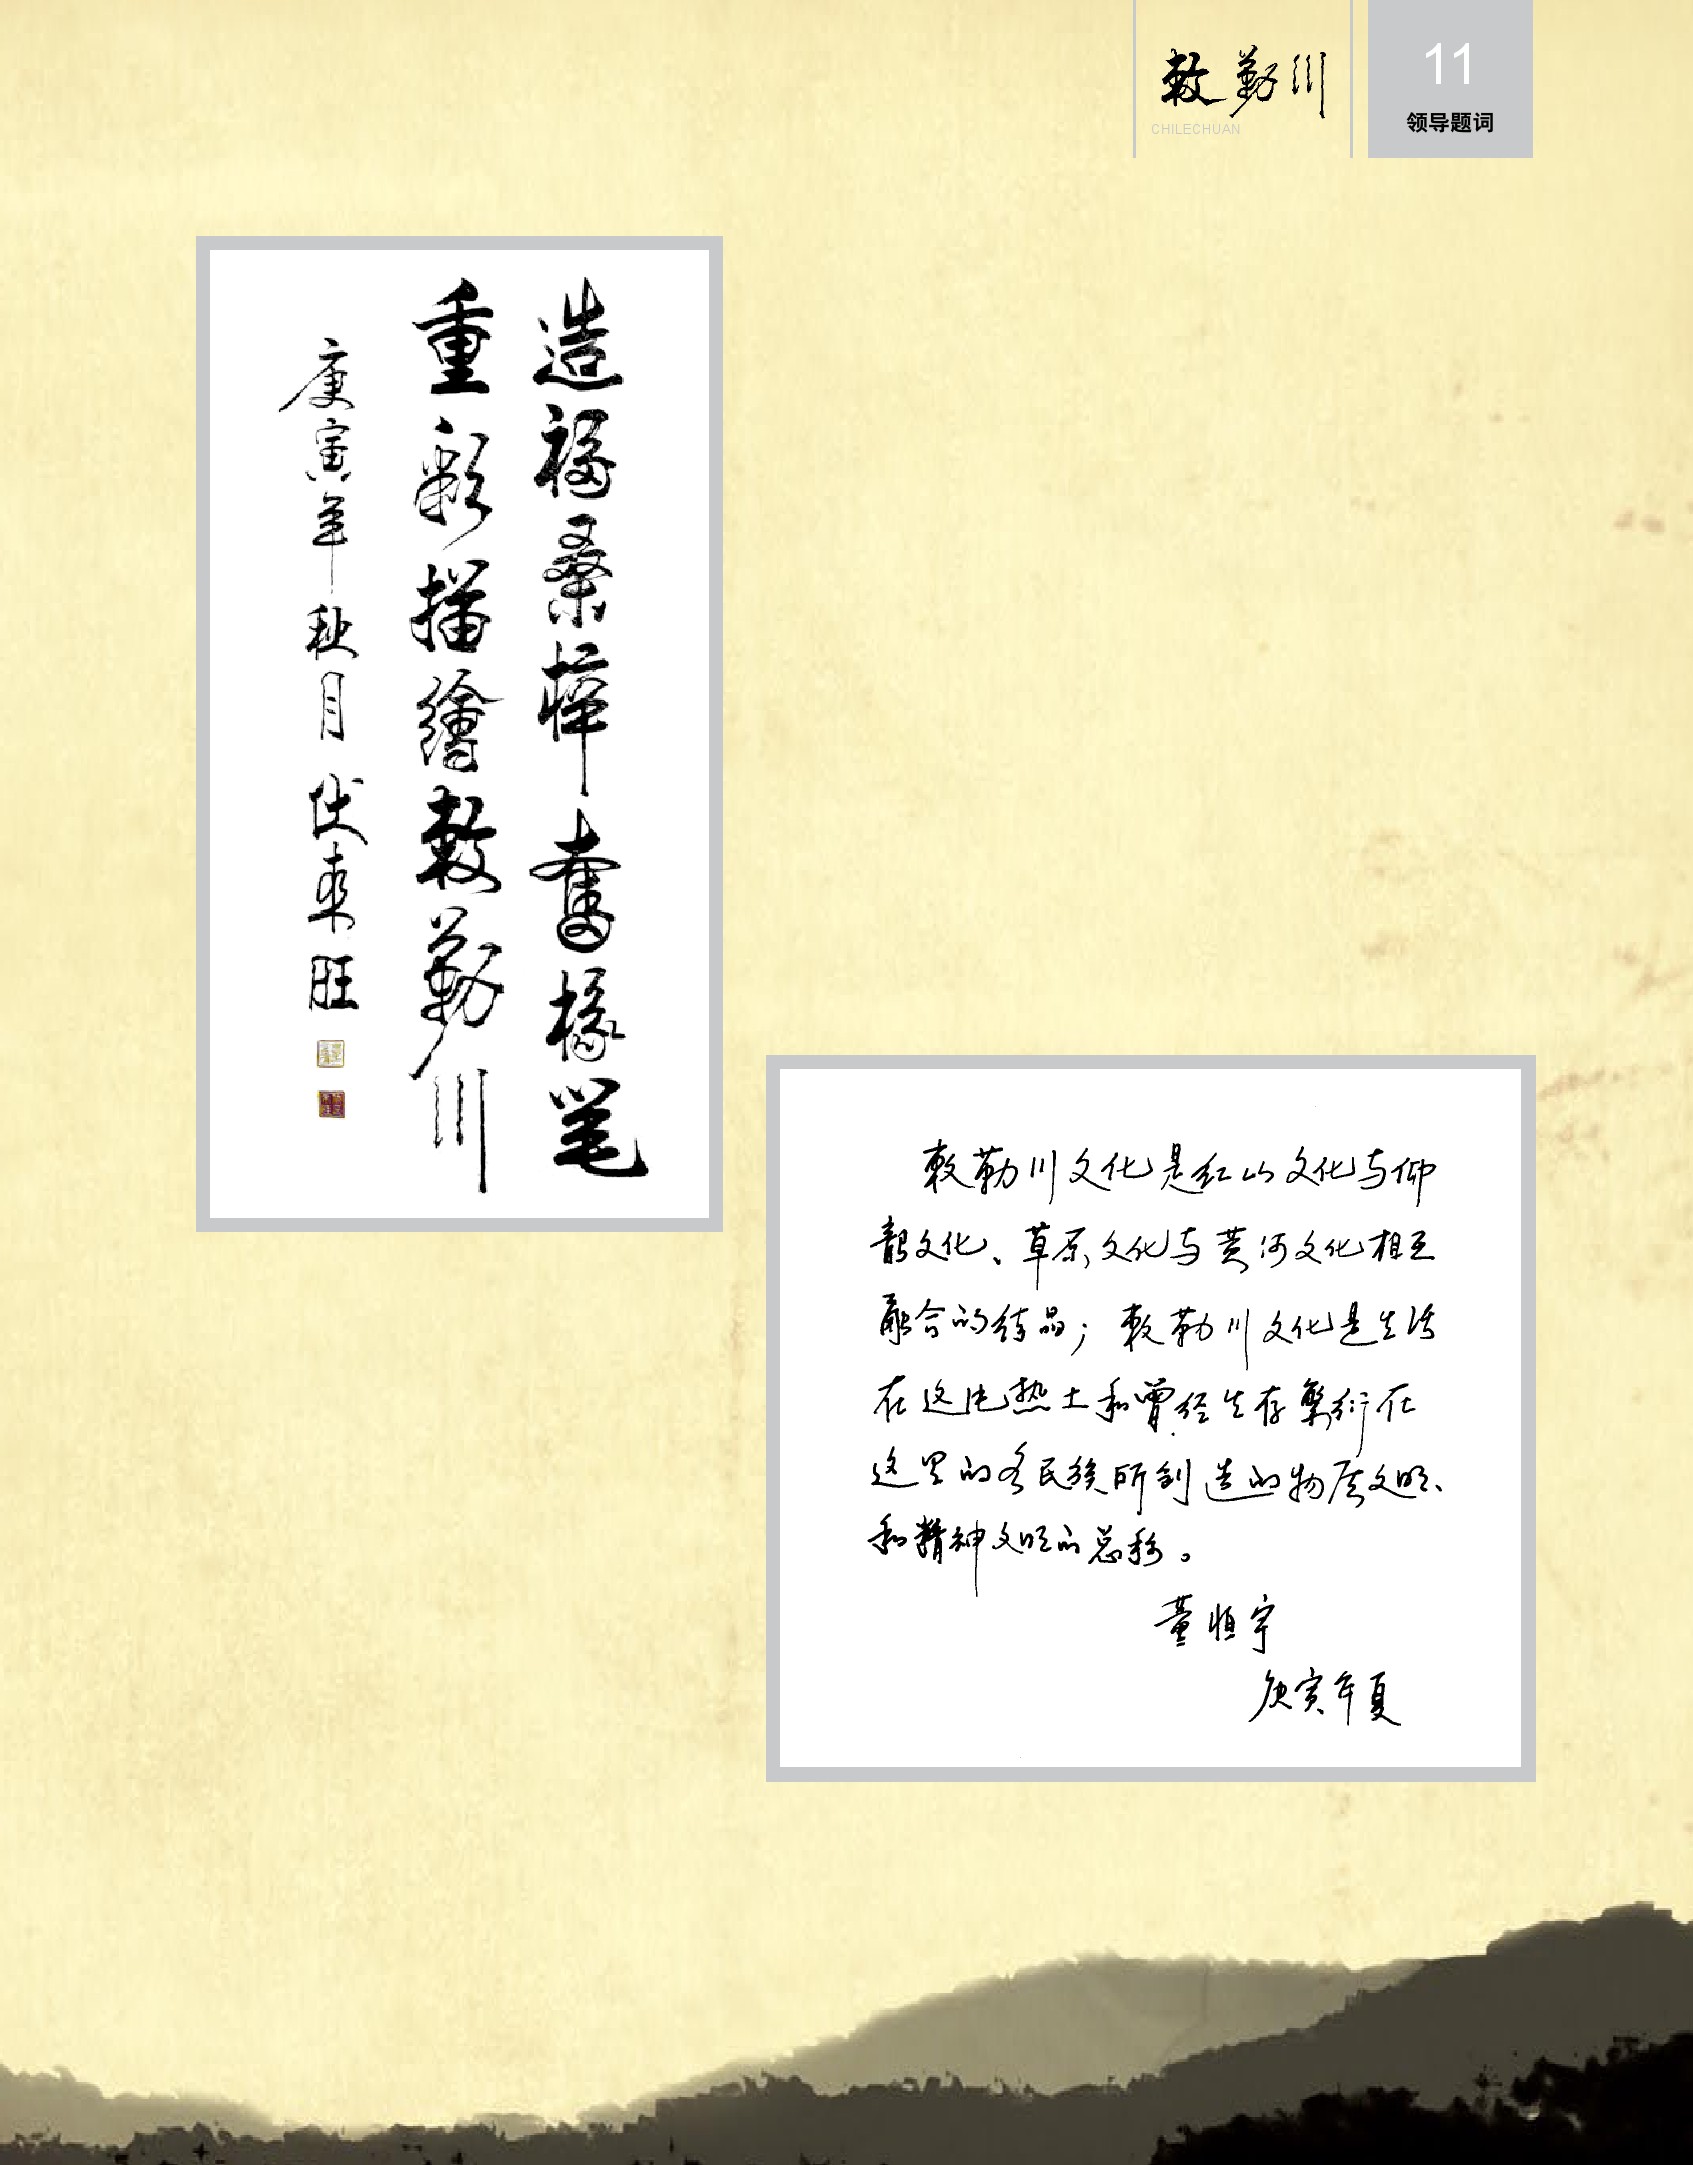 敕勒川
CHILECHUAN
11
领导题词
造福桑梓奮椽笔
重彩描繪敕勒川
庚寅年秋月伏来旺
敕勒川文化是红山文化与仰
韶文化、草原文化与黄河文化相互
融合的结晶；敕勒川文化是生活
在这片热土和曾经生存繁衍在
这里的各民族所创造的物质文明、
和精神文明的总称。
董恒宇
庚寅年夏